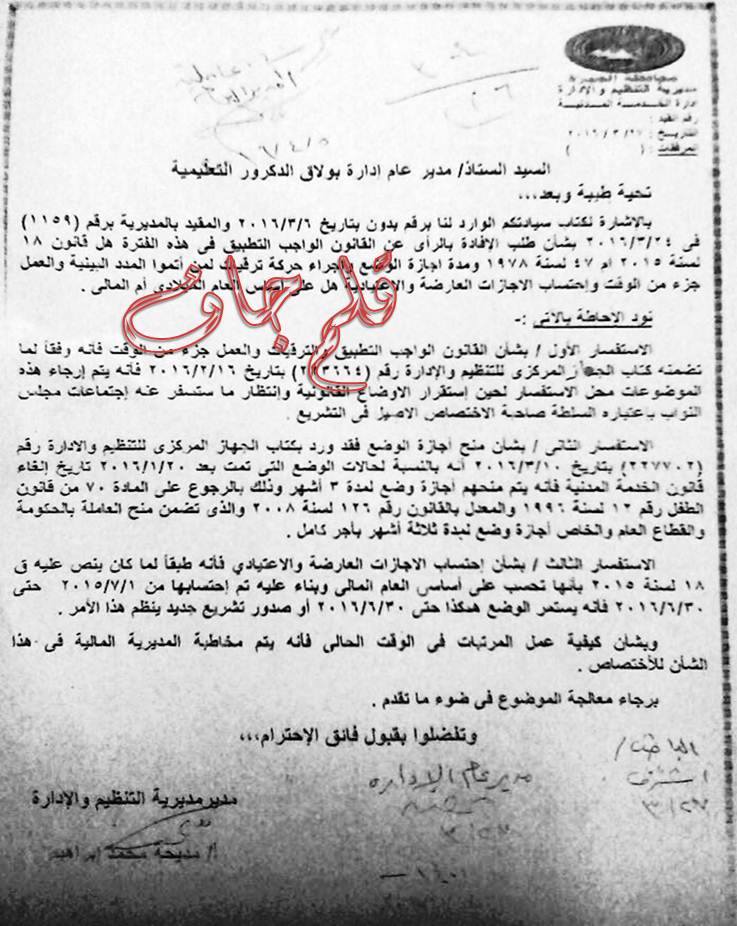 محافظة الجيزة
مديرية التنظيم والإدارة
إدارة الخدمة المدنية
رقم القيد :
التاريخ : ٢٠١٦/٣/٢٧
المرفقات : ( )
السيد الستاذ/ مدير عام إدارة بولاق الدكرور التعليمية
تحية طيبة وبعد،،،
بالإشارة لكتاب سيادتكم الوارد لنا برقم بدون بتاريخ ٢٠١٦/٣/٦ والمقيد بالمديرية برقم (١١٥٩)
فى ٢٠١٦/٣/٢٤ بشأن طلب الإفادة بالرأى عن القانون الواجب التطبيق فى هذه الفترة هل قانون ١٨
لسنة ٢٠١٥ ام ٤٧ لسنة ١٩٧٨ ومدة اجازة الوضع وإجراء حركة ترقيات لمن أتموا المدد البينية والعمل
جزء من الوقت وإحتساب الاجازات العارضة والاعتيادية هل على أساس العام الميلادى أم المالى .
قلم جاف
نود الاحاطة بالاتى :-
الاستفسار الأول / بشأن القانون الواجب التطبيق والترقيات والعمل جزء من الوقت فأنه وفقاً لما
تضمنه كتاب الجهاز المركزى للتنظيم والإدارة رقم ( ٣٦٦٤) بتاريخ ٢٠١٦/٢/١٦ فأنه يتم إرجاء هذه
الموضوعات محل الاستفسار لحين إستقرار الاوضاع القانونية وإنتظار ما ستسفر عنه إجتماعات مجلس
النواب بإعتباره السلطة صاحبة الاختصاص الاصيل فى التشريع .
الاستفسار الثانى / بشأن منح أجازة الوضع فقد ورد بكتاب الجهاز المركزى للتنظيم والادارة رقم
(٢٢٧٧٠٢) بتاريخ ٢٠١٦/٣/١٠ أنه بالنسبة لحالات الوضع التى تمت بعد ٢٠١٦/١/٢٠ تاريخ إلغاء
قانون الخدمة المدنية فأنه يتم منحهم أجازة وضع لمدة ٣ أشهر وذلك بالرجوع على المادة ٧٠ من قانون
الطفل رقم ١٢ لسنة ١٩٩٦ والمعدل بالقانون رقم ١٢٦ لسنة ٢٠٠٨ والذى تضمن منح العاملة بالحكومة
والقطاع العام والخاص أجازة وضع لمدة ثلاثة أشهر بأجر كامل .
الاستفسار الثالث / بشأن إحتساب الاجازات العارضة والاعتيادي فأنه طبقاً لما كان ينص عليه ق
١٨ لسنة ٢٠١٥ بأنها تحسب على أساسى العام المالى وبناء عليه تم إحتسابها من ٢٠١٥/٧/١ حتى
٢٠١٦/٦/٣٠ فأنه يستمر الوضع هكذا حتى ٢٠١٦/٦/٣٠ أو صدور تشريع جديد ينظم هذا الأمر .
وبشأن كيفية عمل المرتبات فى الوقت الحالى فأنه يتم مخاطبة المديرية المالية فى هذا
الشأن للأختصاص .
برجاء معالجة الموضوع فى ضوء ما تقدم .
وتفضلوا بقبول فائق الإحترام،،،
الباحث /
اشرف
٣/٢٧
مدير عام الإدارة
٣/٢٧
مديرمديرية التنظيم والإدارة
أ/ مديحة محمد إبراهيم